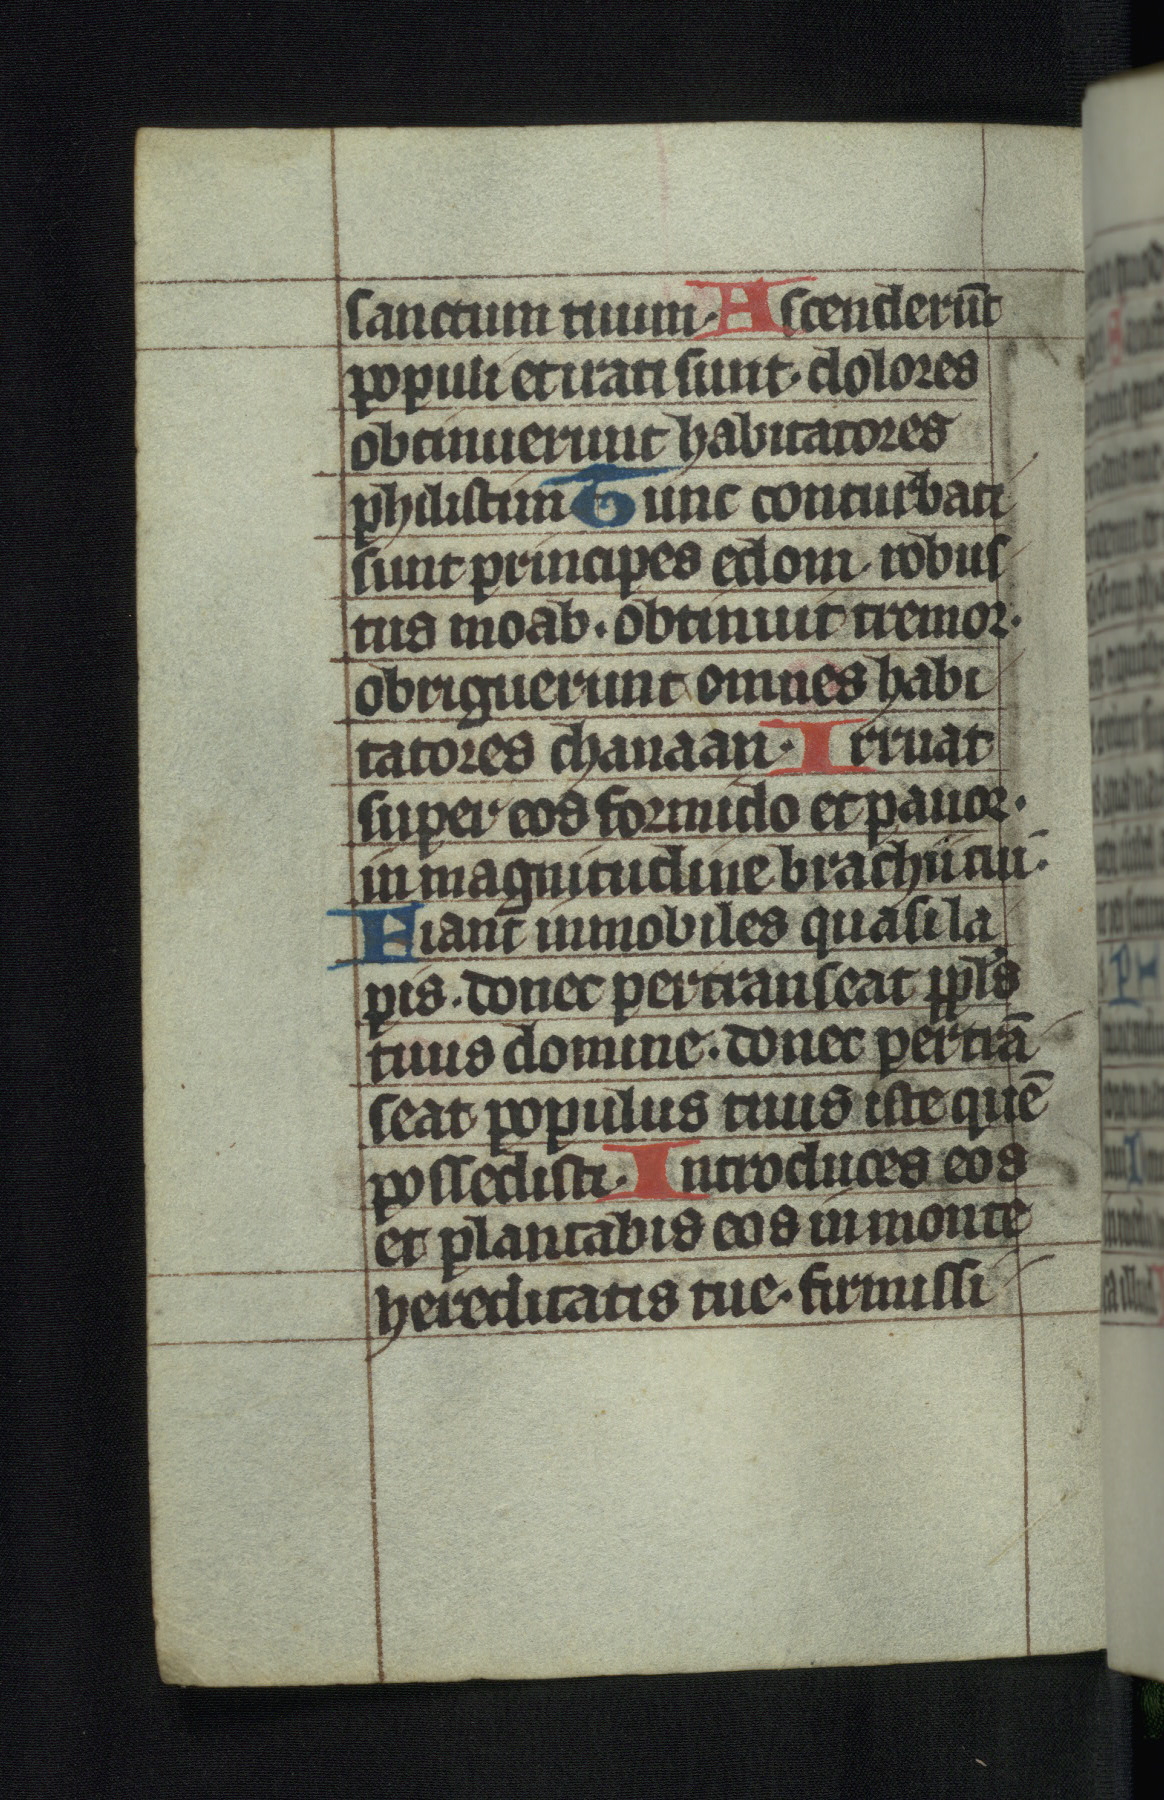 sanctum tuum· Ascenderūt
populi et irati sunt· dolores
obtinuerunt habitatores
philistim Tunc conturbati
sunt principes edom· robus
tus moab· obtinuit tremor·
obriguerunt omnes habi
tatores chanaan· Irruat
super eos formido et pauor·
in magnitudine brachii tui·
Fiant inmobiles quasi la
pis· donec pertranseat ppl's
tuus domine· donec pertrā
seat populus tuus iste quē
possedisti· Introduces eos
et plantabis eos in monte
hereditatis tue· firmissi